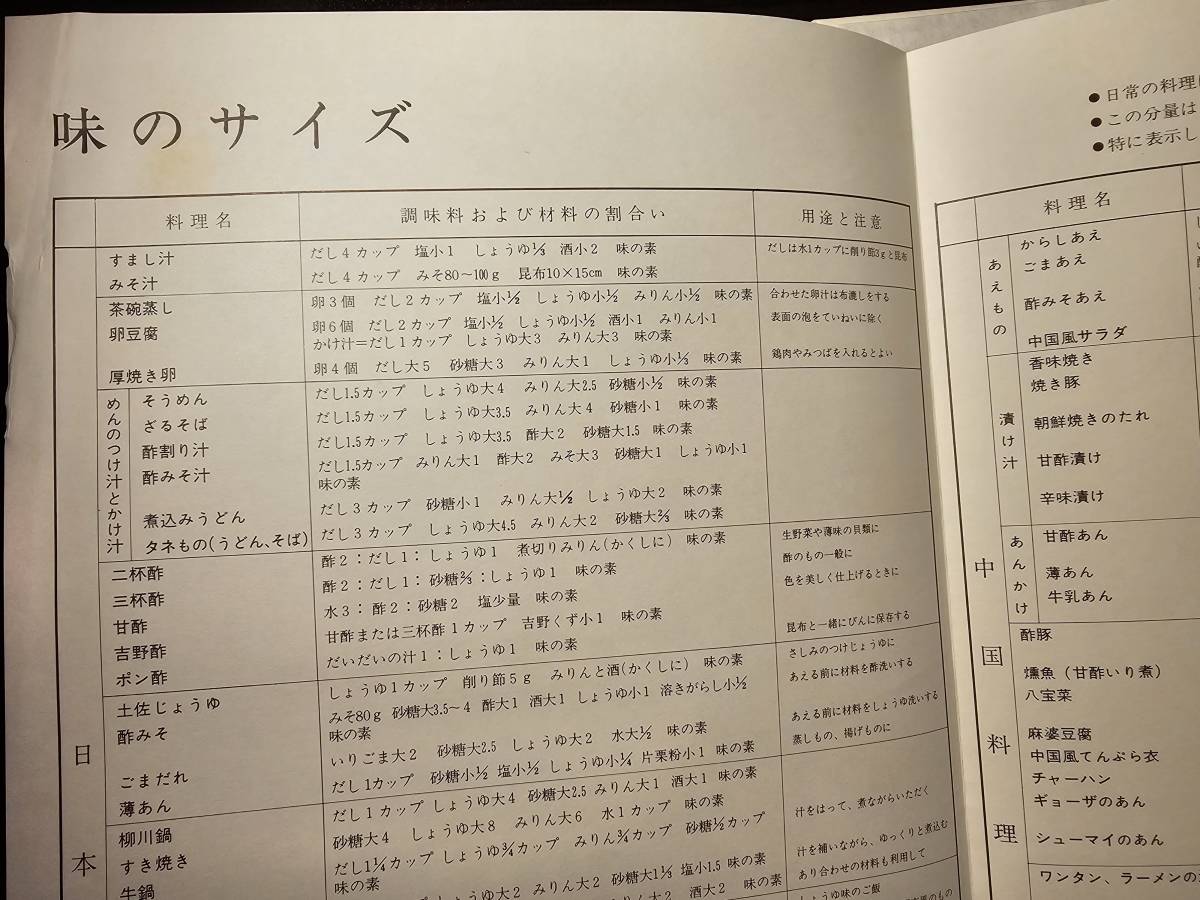 味のサイズ
料理名 調味料および材料の割合い 用途と注意
すまし汁 だし4カップ 塩小1 しょうゆ⅓ 酒小2 味の素 だしは水1カップに削り節3gと昆布
みそ汁 だし4カップ みそ80〜100g 昆布10×15cm 味の素
茶碗蒸し 卵3個 だし2カップ 塩小½ しょうゆ小½ みりん小½ 味の素 合わせた卵汁は布漉しをする
卵豆腐 卵6個 だし2カップ 塩小½ しょうゆ小½ 酒小1 みりん小1 表面の泡をていねいに除く
かけ汁=だし1カップ しょうゆ大3 みりん大3 味の素
厚焼き卵 卵4個 だし大5 砂糖大3 みりん大1 しょうゆ小⅓ 味の素 鶏肉やみつばを入れるとよい
めんのつけ汁とかけ汁
そうめん だし1.5カップ しょうゆ大4 みりん大2.5 砂糖小½ 味の素
ざるそば だし1.5カップ しょうゆ大3.5 みりん大4 砂糖小1 味の素
酢割り汁 だし1.5カップ しょうゆ大3.5 酢大2 砂糖大1.5 味の素
酢みそ汁 だし1.5カップ みりん大1 酢大2 みそ大3 砂糖大1 しょうゆ小1
味の素
煮込みうどん だし3カップ 砂糖小1 みりん大½ しょうゆ大2 味の素
タネもの(うどん、そば) だし3カップ しょうゆ大4.5 みりん大2 砂糖大⅔ 味の素
二杯酢 酢2:だし1:しょうゆ1 煮切りみりん(かくしに) 味の素 生野菜や薄味の貝類に
三杯酢 酢2:だし1:砂糖⅔:しょうゆ1 味の素 酢のもの一般に
甘酢 水3:酢2:砂糖2 塩少量 味の素 色を美しく仕上げるときに
吉野酢 甘酢または三杯酢1カップ 吉野くず小1 味の素
ポン酢 だいだいの汁1:しょうゆ1 味の素 昆布と一緒にびんに保存する
土佐じょうゆ しょうゆ1カップ 削り節5g みりんと酒(かくしに) 味の素 さしみのつけじょうゆに
酢みそ みそ80g 砂糖大3.5〜4 酢大1 酒大1 しょうゆ小1 溶きがらし小½ あえる前に材料を酢洗いする
味の素
ごまだれ いりごま大2 砂糖大2.5 しょうゆ大2 水大½ 味の素 あえる前に材料をしょうゆ洗いする
薄あん だし1カップ 砂糖小½ 塩小½ しょうゆ小¼ 片栗粉小1 味の素 蒸しもの、揚げものに
柳川鍋 だし1カップ しょうゆ大4 砂糖大2.5 みりん大1 酒大1 味の素 汁をはって、煮ながらいただく
すき焼き 砂糖大4 しょうゆ大8 みりん大6 水1カップ 味の素 汁を補いながら、ゆっくりと煮込む
牛鍋 だし1¼カップ しょうゆ¾カップ みりん¾カップ 砂糖½カップ あり合わせの材料も利用して
味の素
しょうゆ大2 みりん大2 砂糖大1⅓ 塩小1.5 味の素 しょうゆ味のご飯
大2 酒大2 味の素
日本
●日常の料理
●この分量は
●特に表示し
料理名
あえもの
からしあえ
ごまあえ
酢みそあえ
中国風サラダ
漬け汁
香味焼き
焼き豚
朝鮮焼きのたれ
甘酢漬け
辛味漬け
あんかけ
甘酢あん
薄あん
牛乳あん
中国料理
酢豚
燻魚(甘酢いり煮)
八宝菜
麻婆豆腐
中国風てんぷら衣
チャーハン
ギョーザのあん
シューマイのあん
ワンタン、ラーメンの